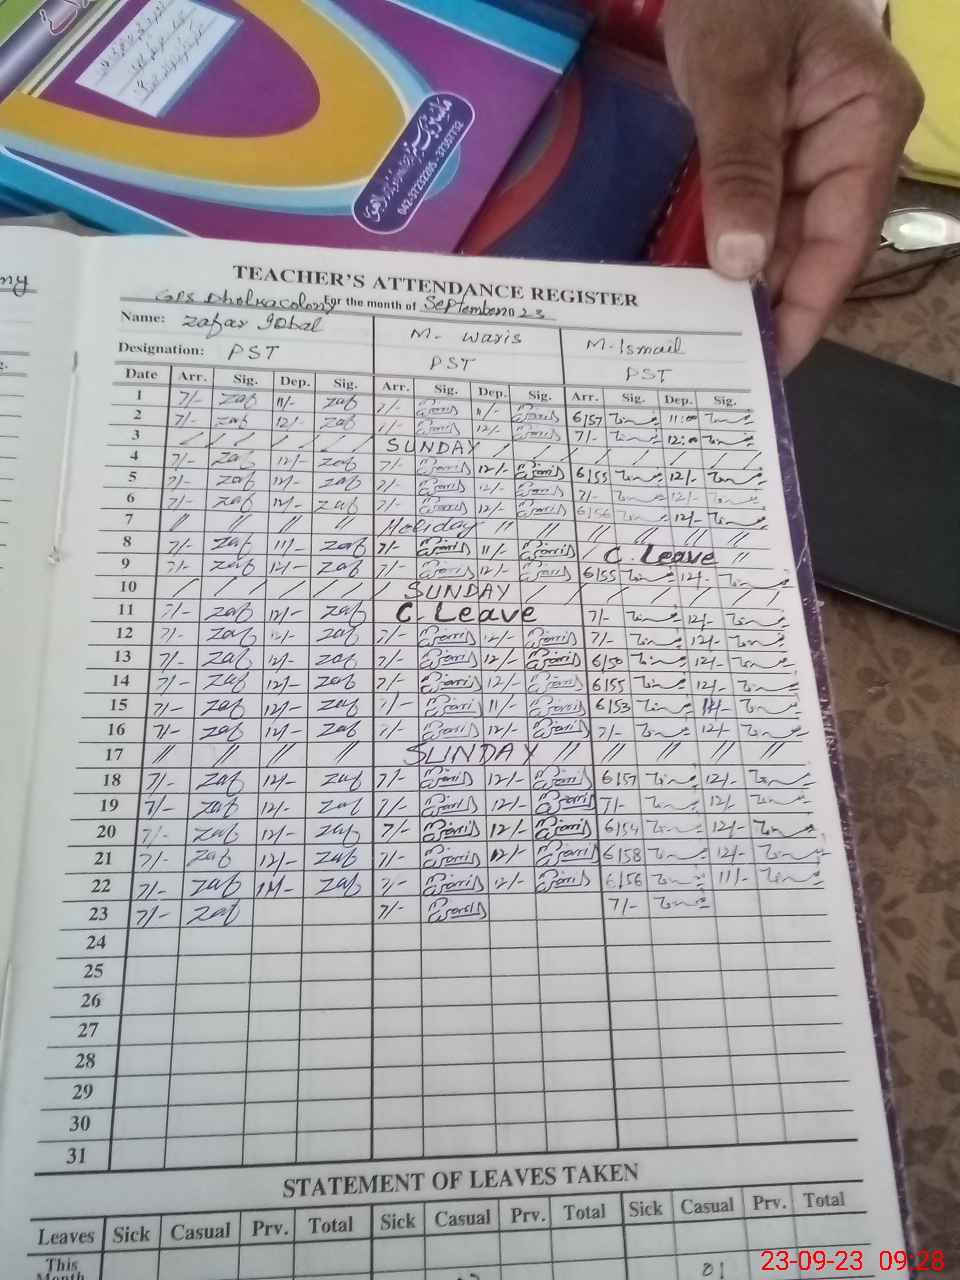 042-37232205 - 37357732
TEACHER'S ATTENDANCE REGISTER
GPS Dholka colony For the month of September 2023
Name: Zafar Iqbal M. Waris M. Ismail
Designation: PST PST PST
Date Arr. Sig. Dep. Sig. Arr. Sig. Dep. Sig. Arr. Sig. Dep. Sig.
1 7/- Zaf 11/- Zaf 7/- Waris 11/- Waris 6/57 11:00
2 7/- Zaf 12/- Zaf 7/- Waris 12/- Waris 7/- 12:00
3 / / / / / SUNDAY / / / / / /
4 7/- Zaf 12/- Zaf 7/- Waris 12/- Waris 6/55 12/-
5 7/- Zaf 12/- Zaf 7/- Waris 12/- Waris 7/- 12/-
6 7/- Zaf 12/- Zaf 7/- Waris 12/- Waris 6/56 12/-
7 // // // // Holiday // // // // // //
8 7/- Zaf 11/- Zaf 7/- Waris 11/- Waris / C. Leave //
9 7/- Zaf 12/- Zaf 7/- Waris 12/- Waris 6/55 12/-
10 / / / / / SUNDAY / / / / / /
11 7/- Zaf 12/- Zaf C. Leave 7/- 12/-
12 7/- Zaf 12/- Zaf 7/- Waris 12/- Waris 7/- 12/-
13 7/- Zaf 12/- Zaf 7/- Waris 12/- Waris 6/50 12/-
14 7/- Zaf 12/- Zaf 7/- Waris 12/- Waris 6/55 12/-
15 7/- Zaf 12/- Zaf 7/- Waris 11/- Waris 6/53 11/-
16 7/- Zaf 12/- Zaf 7/- Waris 12/- Waris 7/- 12/-
17 // // // // SUNDAY // // // // //
18 7/- Zaf 12/- Zaf 7/- Waris 12/- Waris 6/57 12/-
19 7/- Zaf 12/- Zaf 7/- Waris 12/- Waris 7/- 12/-
20 7/- Zaf 12/- Zaf 7/- Waris 12/- Waris 6/54 12/-
21 7/- Zaf 12/- Zaf 7/- Waris 12/- Waris 6/58 12/-
22 7/- Zaf 11/- Zaf 7/- Waris 12/- Waris 6/56 11/-
23 7/- Zaf 7/- Waris 7/-
24
25
26
27
28
29
30
31
STATEMENT OF LEAVES TAKEN
Leaves Sick Casual Prv. Total Sick Casual Prv. Total Sick Casual Prv. Total
This Month 01
23-09-23 09:28